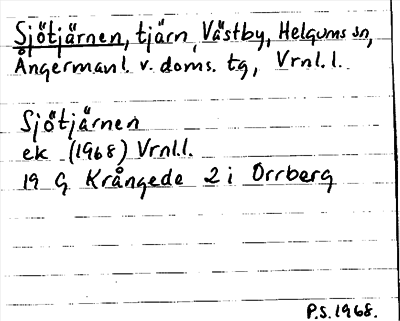 Sjötjärnen, tjärn, Västby, Helgums sn,
Ångermanl. v. doms. tg, Vrnl. l.
Sjötjärnen
ek (1968) Vrnl.l.
19 G Krångede 2 i Orrberg
P.S. 1968.